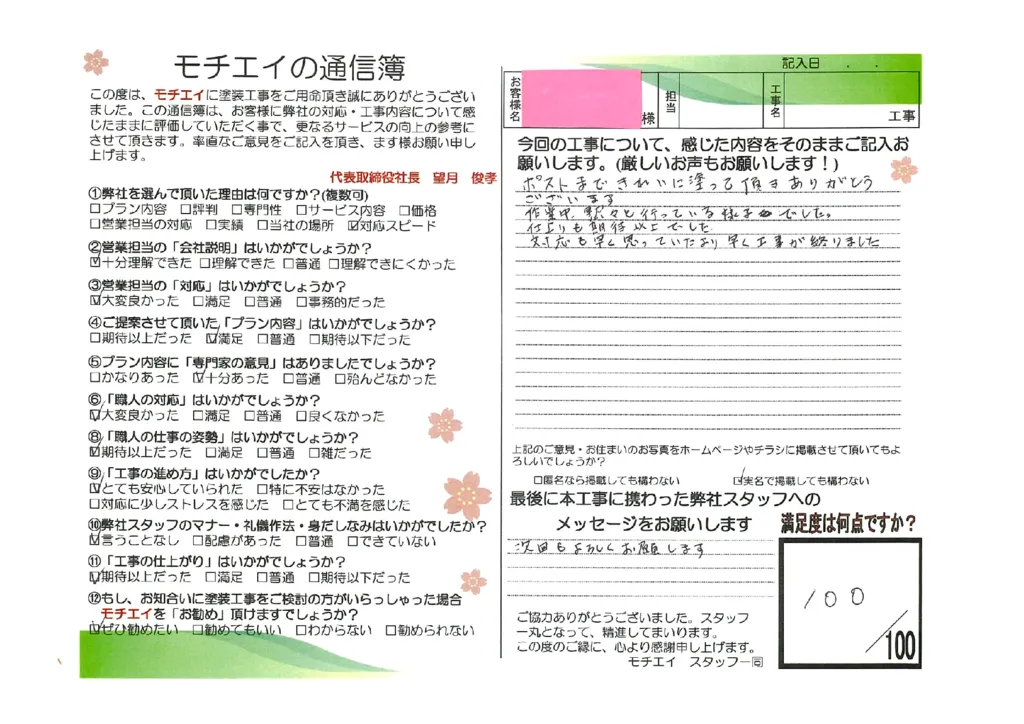 モチエイの通信簿
この度は、モチエイに塗装工事をご用命頂き誠にありがとうござい
ました。この通信簿は、お客様に弊社の対応・工事内容について感
じたままに評価していただく事で、更なるサービスの向上の参考に
させて頂きます。率直なご意見をご記入を頂き、ます様お願い申し
上げます。
代表取締役社長 望月 俊孝
①弊社を選んで頂いた理由は何ですか?(複数可)
□プラン内容 □評判 □専門性 □サービス内容 □価格
□営業担当の対応 □実績 □当社の場所 ☑対応スピード
②営業担当の「会社説明」はいかがでしょうか?
☑十分理解できた □理解できた □普通 □理解できにくかった
③営業担当の「対応」はいかがでしょうか?
☑大変良かった □満足 □普通 □事務的だった
④ご提案させて頂いた「プラン内容」はいかがでしょうか?
□期待以上だった ☑満足 □普通 □期待以下だった
⑤プラン内容に「専門家の意見」はありましたでしょうか?
□かなりあった ☑十分あった □普通 □殆んどなかった
⑥「職人の対応」はいかがでしょうか?
☑大変良かった □満足 □普通 □良くなかった
⑧「職人の仕事の姿勢」はいかがでしょうか?
☑期待以上だった □満足 □普通 □雑だった
⑨「工事の進め方」はいかがでしたか?
☑とても安心していられた □特に不安はなかった
□対応に少しストレスを感じた □とても不満を感じた
⑩弊社スタッフのマナー・礼儀作法・身だしなみはいかがでしたか?
☑言うことなし □配慮があった □普通 □できていない
⑪「工事の仕上がり」はいかがでしょうか?
☑期待以上だった □満足 □普通 □期待以下だった
⑫もし、お知合いに塗装工事をご検討の方がいらっしゃった場合
モチエイを「お勧め」頂けますでしょうか?
☑ぜひ勧めたい □勧めてもいい □わからない □勧められない
記入日 . .
お客様名 様 担当 工事名 工事
今回の工事について、感じた内容をそのままご記入お
願いします。(厳しいお声もお願いします!)
ポストまできれいに塗って頂きありがとう
ございます
作業中 黙々と行っている様子でした。
仕上りも期待以上でした
対応も早く思っていたより早く工事が終りました
上記のご意見・お住まいのお写真をホームページやチラシに掲載させて頂いてもよ
ろしいでしょうか?
□匿名なら掲載しても構わない ☑実名で掲載しても構わない
最後に本工事に携わった弊社スタッフへの
メッセージをお願いします
次回もよろしくお願いします
ご協力ありがとうございました。スタッフ
一丸となって、精進してまいります。
この度のご縁に、心より感謝申し上げます。
モチエイ スタッフ一同
満足度は何点ですか?
100
/100